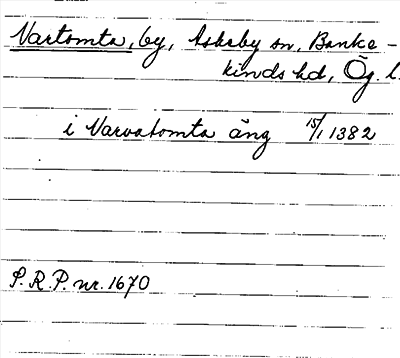 Vartomta, by, Askeby sn, Banke-
kinds hd, Ög. l.
i Varvatomta äng 15/1 1382
S.R.P. nr. 1670